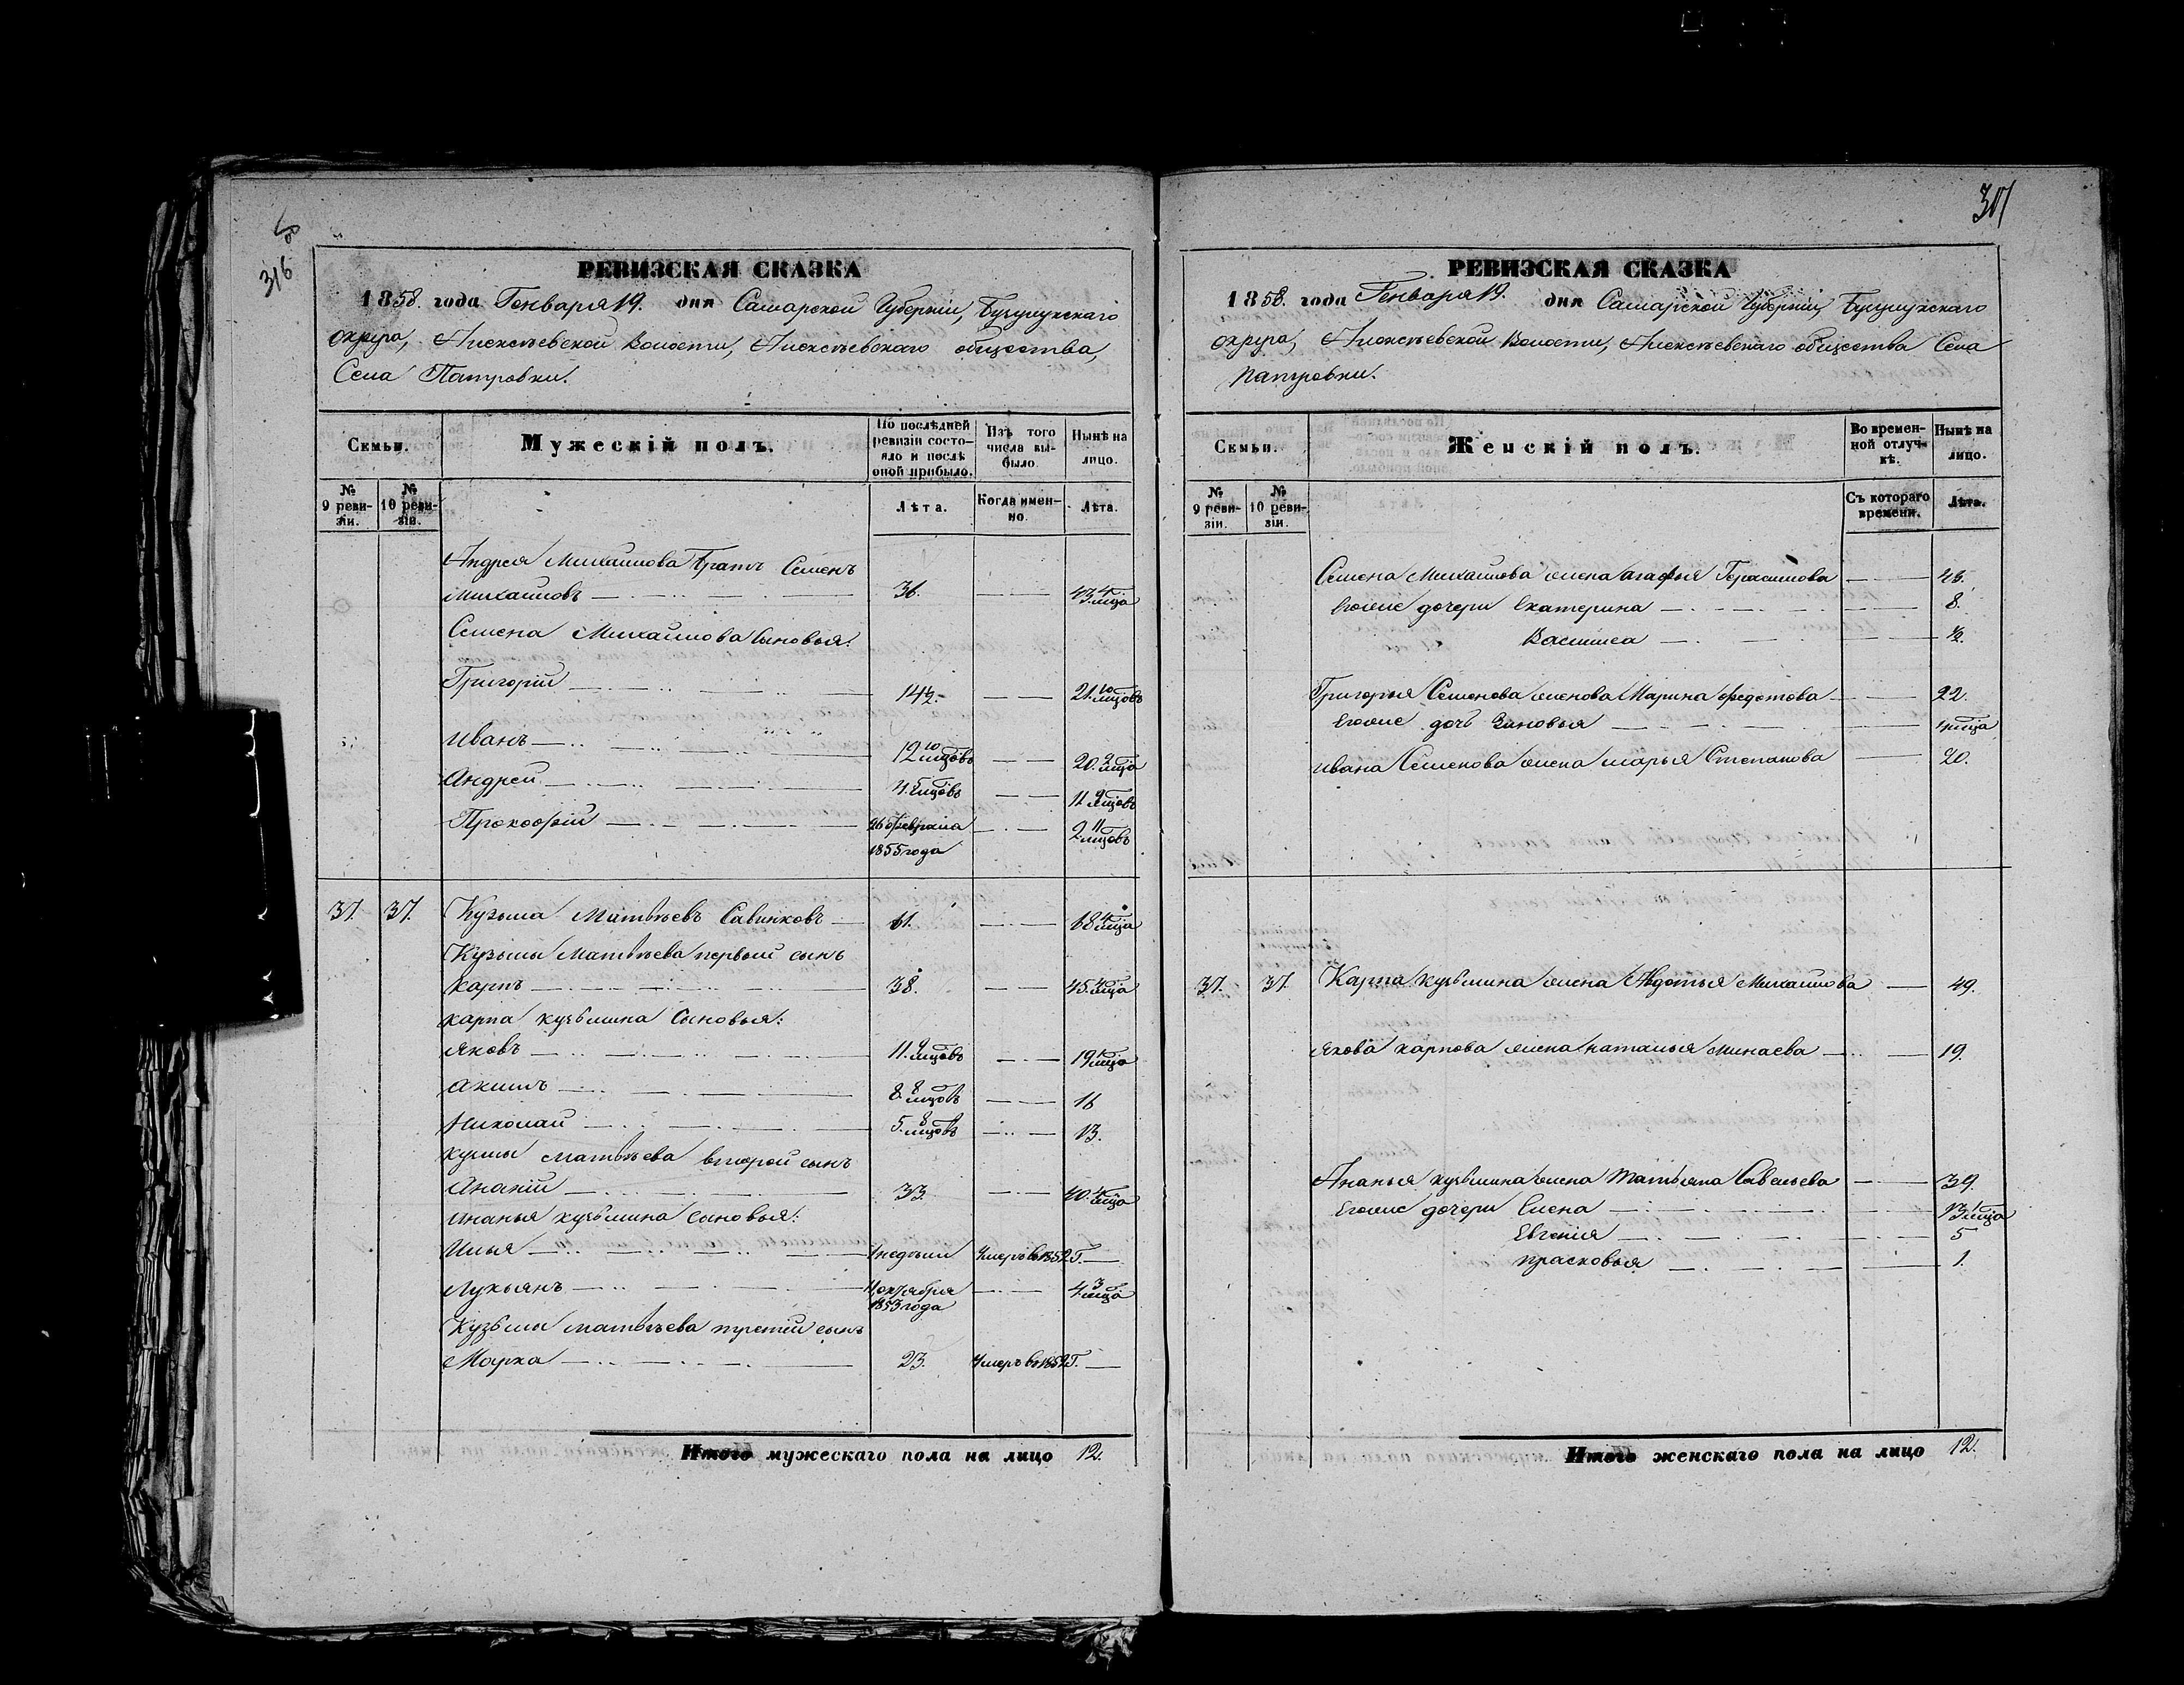 316
РЕВИЗСКАЯ СКАЗКА
1858. года Генваря 19. дня Самарской Губерніи, Бузулукскаго
округа, Алексѣевской Волости, Алексѣевскаго общества,
Села Патровки.
Семьи.
Мужескій полъ.
По послѣдней ревизіи состояло и послѣ оной прибыло.
Изъ того числа выбыло.
Нынѣ на лицо.
№ 9 ревизіи.
№ 10 ревизіи.
Лѣта.
Когда именно.
Лѣта.
Андрея Михайлова братъ Семенъ
Михайловъ 36. 43. 4 мца
Семена Михайлова Сыновья:
Григорій 14 1/2. 21. 10 мцовъ
Иванъ 12 10 мцовъ 20. мца
Андрей 4. 5 мцовъ 11 9 мцовъ
Прокофій 26 февраля 1855 года 2. 11 мцовъ
37. 37. Кузьма Матвѣевъ Савинковъ 61. 68 4 мца
Кузьмы Матвѣева первый сынъ
Карпъ 38. 45. 4 мца
Карпа Кузьмина Сыновья:
Яковъ 11. 9 мцовъ 19 1 мца
Акимъ 8. 8 мцовъ 16
Николай 5. 8 мцовъ 13.
Кузмы Матвѣева второй сынъ
Ананій 33 40. 4 мца
Ананья Кузьмина сыновья:
Илья 1 недѣли Умеръ въ 1852 Г.
Лукьянъ октября 1853 года 4. 3 мца
Кузьмы Матвѣева третій сынъ
Марка 23. Умеръ въ 1852 Г.
Итого мужескаго пола на лицо 12.
317
РЕВИЗСКАЯ СКАЗКА
1858. года Генваря 19. дня Самарской Губерніи, Бузулукскаго
округа, Алексѣевской Волости, Алексѣевскаго общества Села
Патровки.
Семьи.
Женскій полъ.
Во временной отлучкѣ.
Нынѣ на лицо.
№ 9 ревизіи.
№ 10 ревизіи.
Съ котораго времени.
Лѣта.
Семена Михайлова жена Агафья Герасимова 43.
Егоже дочери Екатерина 8.
Василиса 1/2.
Григорья Семенова женова Марина Федотова 22.
Егоже дочь Зиновья 4 мца
Ивана Семенова жена Марья Степанова 20.
37. 37. Карпа Кузьмина жена Авдотья Михайлова 49.
Якова Карпова жена Наталья Минаева 19.
Ананья Кузьмина жена Татьяна Савельева 39.
Егоже дочери Елена 13 1 мца
Евгенія 5
Прасковья 1.
Итого женскаго пола на лицо 12.